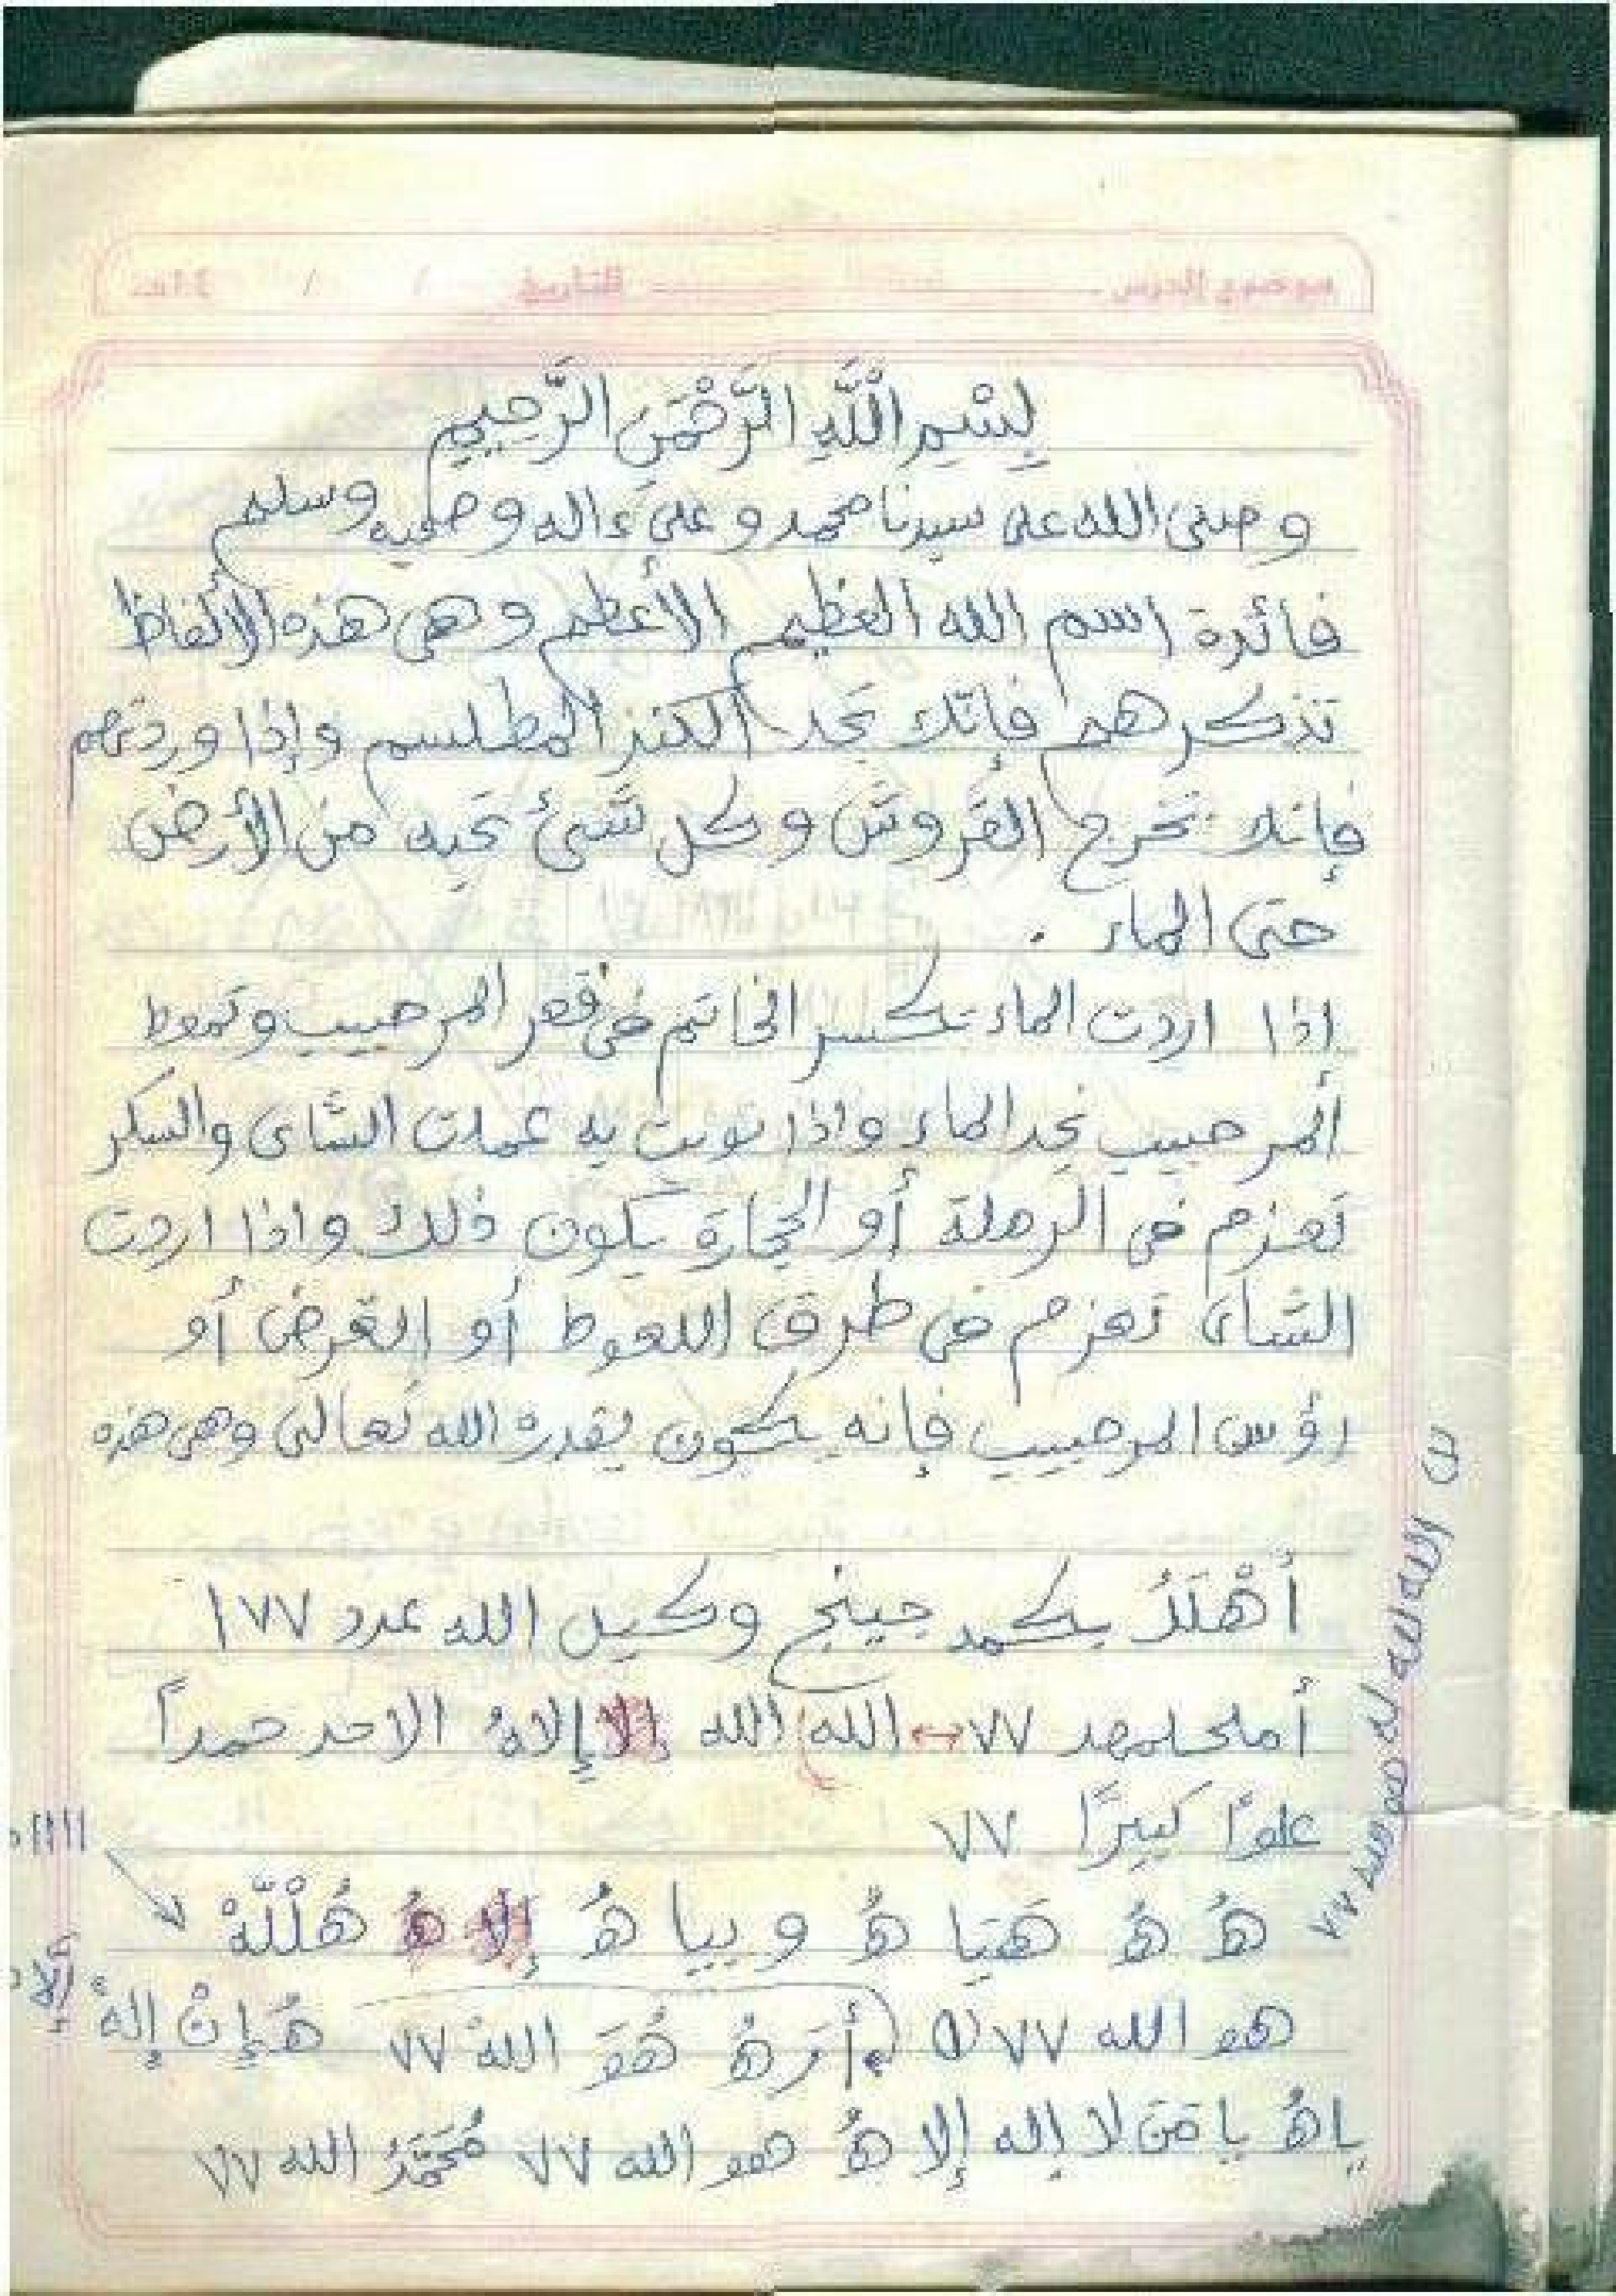 بِسْمِ اللَّهِ الرَّحْمَنِ الرَّحِيمِ
وصلى الله على سيدنا محمد وعلى ءاله وصحبه وسلم
فائدة اسم الله العظيم الأعظم وهى هذه الألفاظ
تذكرهم فإنّك تجد الكنز المطلسم وإذا وردتهم
فإنك تخرج القروش وكل شئ تحبه من الأرض
حتى الماء .
إذا اردت الماء تكسر الخاتم فى قعر المرحبيب وتمعط
ألمرحبيب تجد الماء واذا نويت به عملت الشاى والسكر
تعزم فى الرملة أو الحجارة يكون ذلك واذا اردت
الشاى تعزم فى طرق اللعوط أو القرض أو
رؤس المرحبيب فإنه يكون بقدرة الله تعالى وهى هذه
أَهْلَدُ بكمد جينج وكيل الله عدد ١٧٧
أملحلمهد ٧٧ ↔ الله الله إلا إلاهُ الاحد حمداً
علوًا كبيرًا ٧٧
هُ هُ هَيَا هُ وييا هُ إلا هُ هُلْلَّهْ
هو الله ٧٧ أرَهُ هُوَ اللهْ ٧٧ هَإِنْ إِلهُ
ياهُ يا مَن لا إله إلا هُ هو الله ٧٧ مُحَمَّدُ الله ٧٧